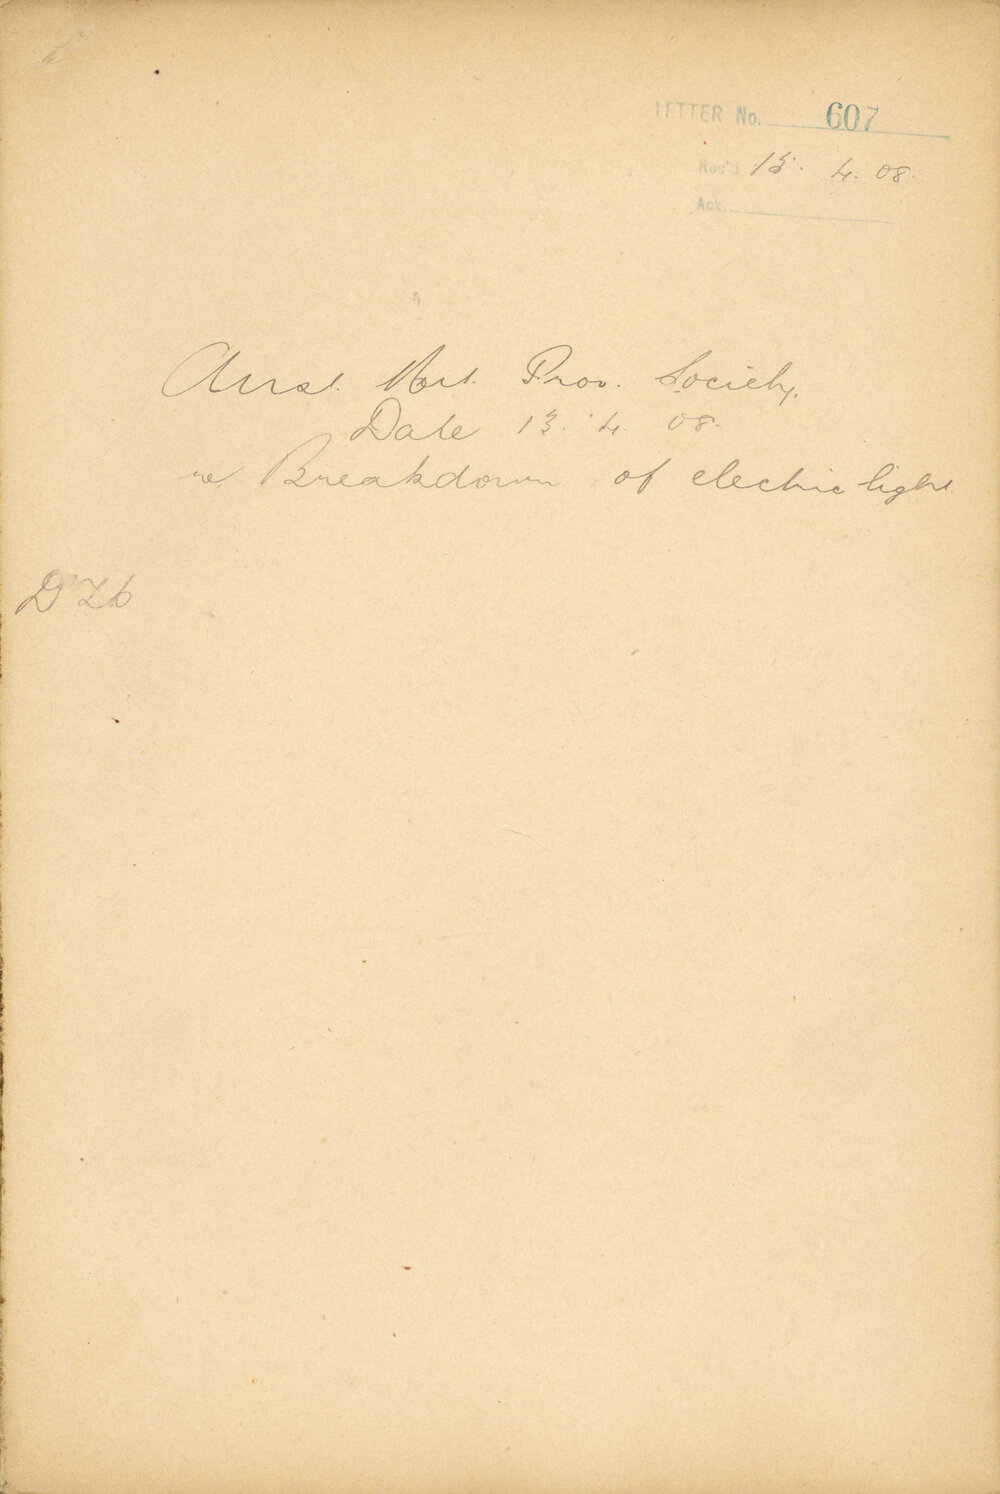 LETTER No. 607
Rec'd 15. 4. 08.
Ack.
Aust. Mut. Prov. Society.
Date 13. 4. 08.
re Breakdown of electric light